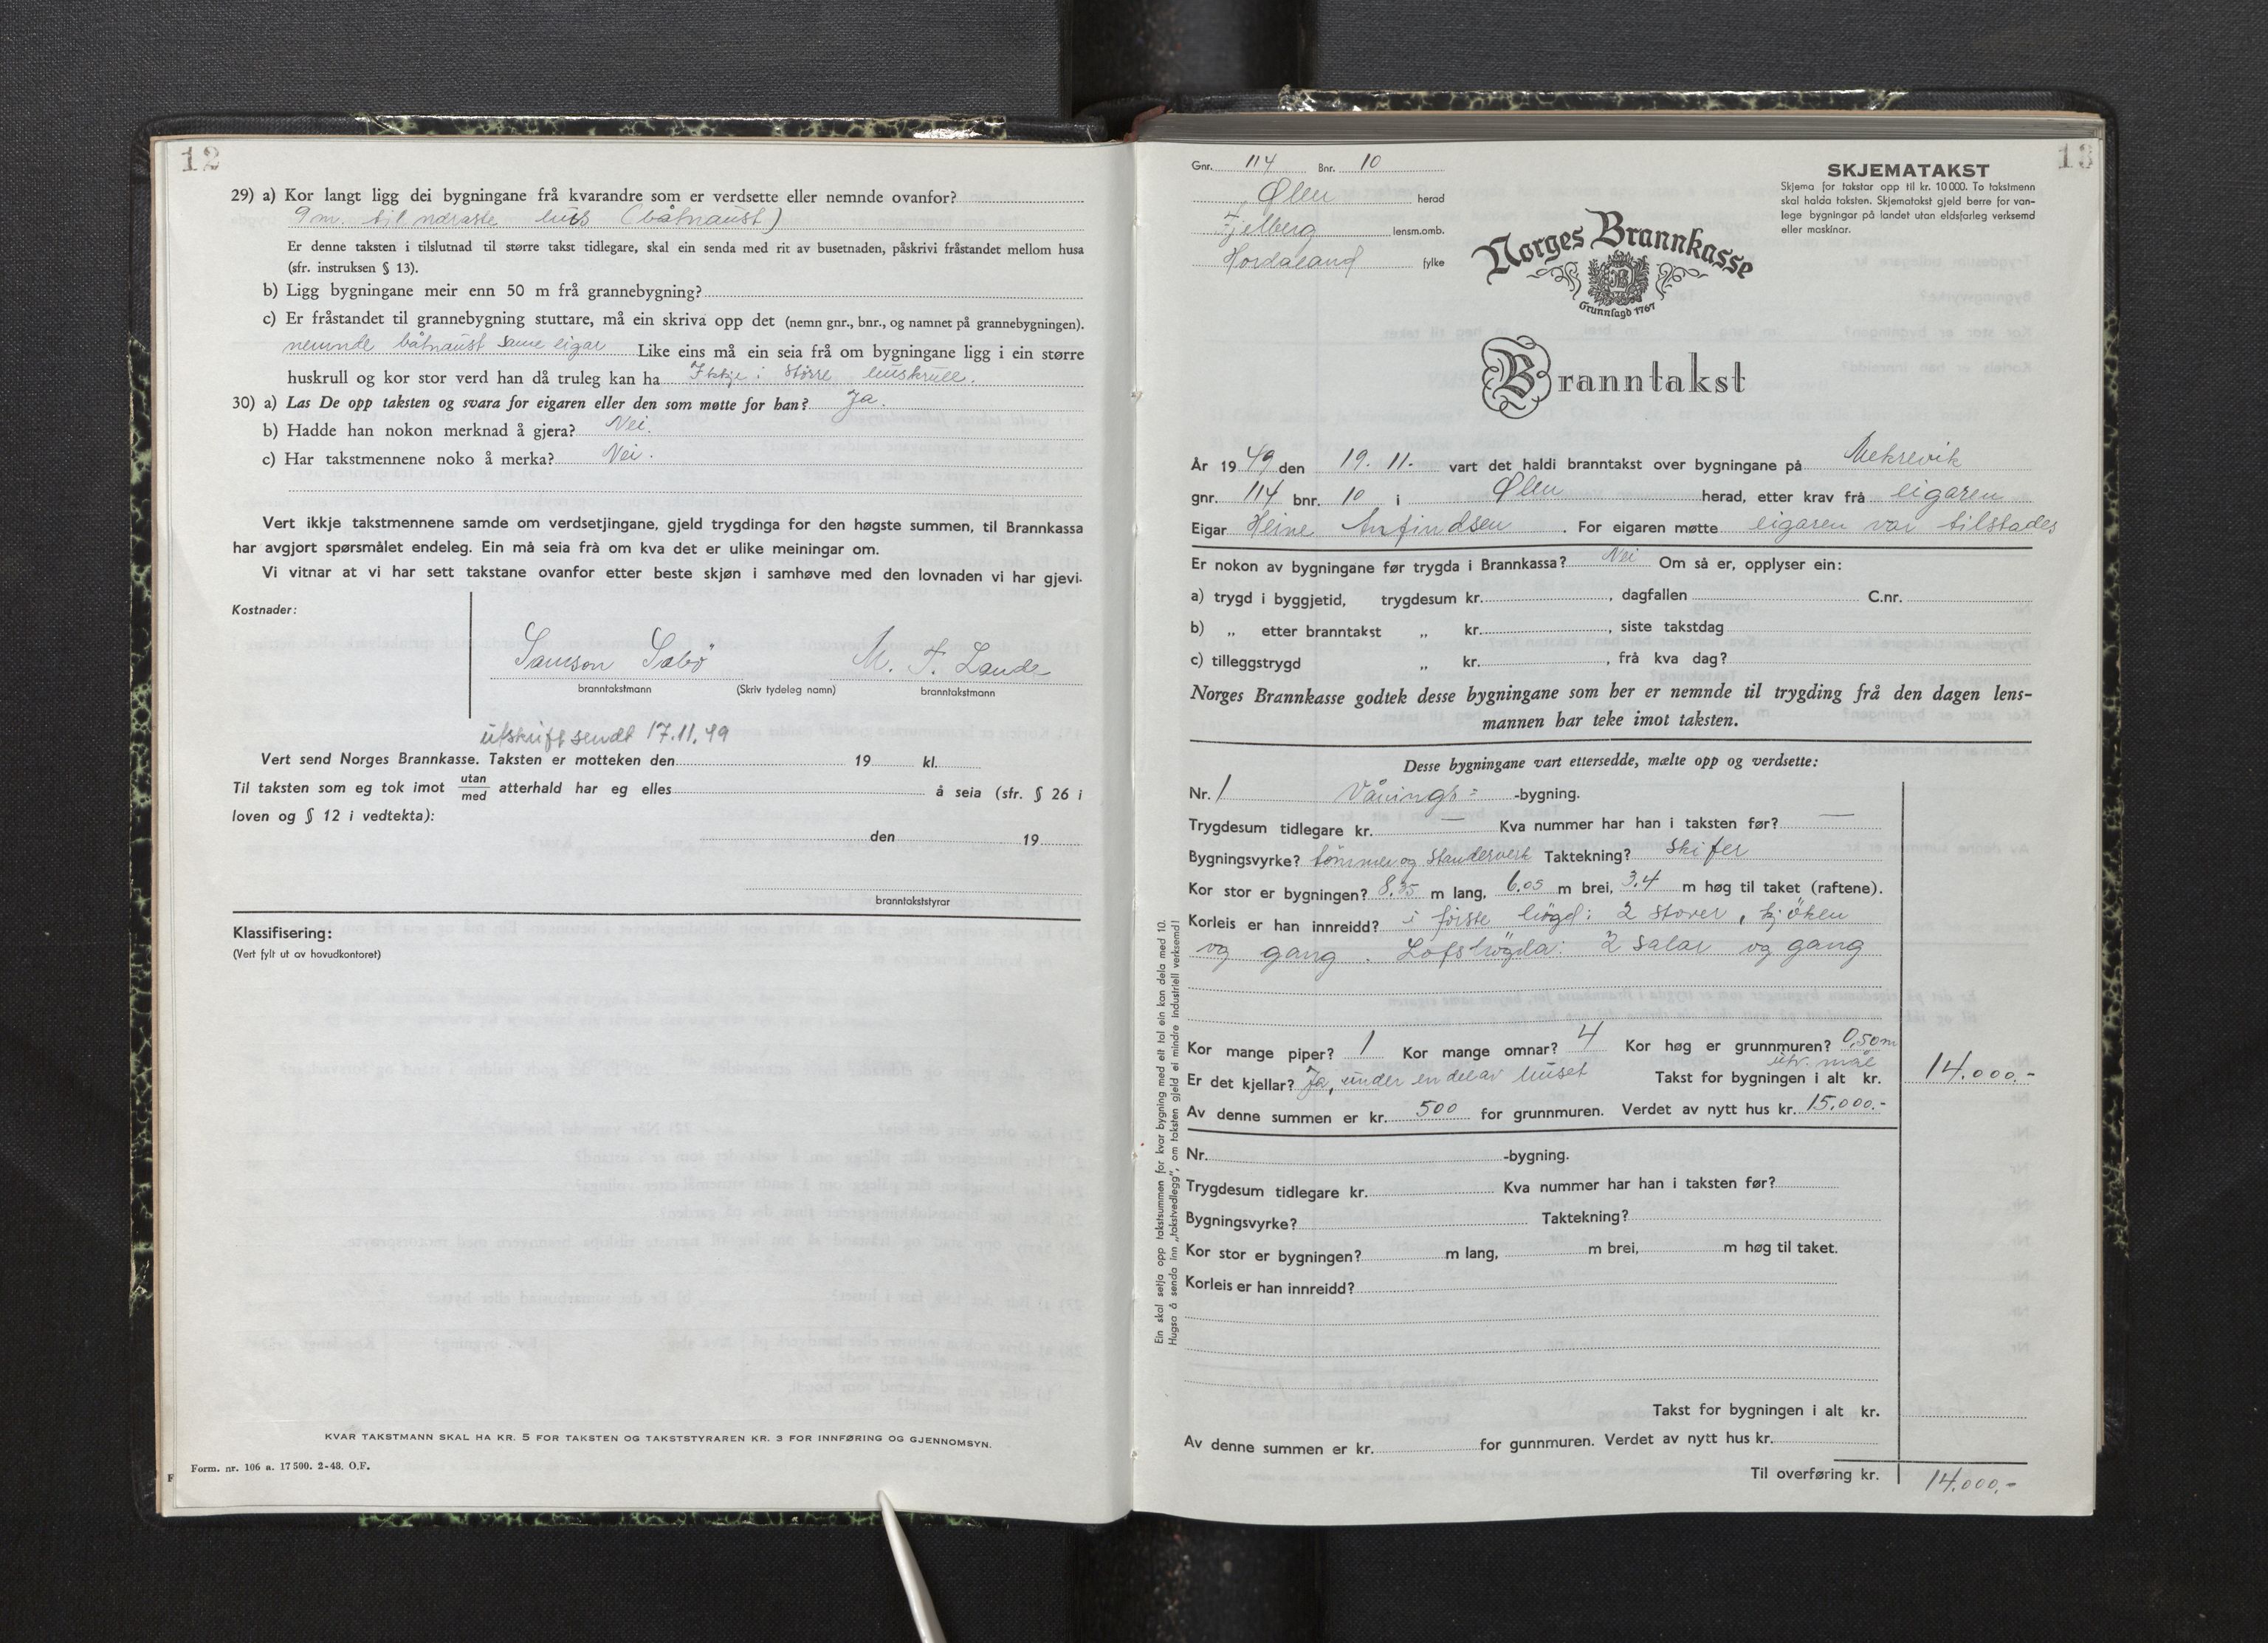 12
29) a) Kor langt ligg dei bygningane frå kvarandre som er verdsette eller nemnde ovanfor?
9 m. til næraste hus (båtnaust)
Er denne taksten i tilslutnad til større takst tidlegare, skal ein senda med rit av busetnaden, påskrivi fråstandet mellom husa
(sfr. instruksen § 13).
b) Ligg bygningane meir enn 50 m frå grannebygning?
c) Er fråstandet til grannebygning stuttare, må ein skriva opp det (nemn gnr., bnr., og namnet på grannebygningen).
nemnde båtnaust same eigar Like eins må ein seia frå om bygningane ligg i ein større
huskrull og kor stor verd han då truleg kan ha Ikkje i større huskrull.
30) a) Las De opp taksten og svara for eigaren eller den som møtte for han? Ja.
b) Hadde han nokon merknad å gjera? Nei.
c) Har takstmennene noko å merka? Nei.
Vert ikkje takstmennene samde om verdsetjingane, gjeld trygdinga for den høgste summen, til Brannkassa
har avgjort spørsmålet endeleg. Ein må seia frå om kva det er ulike meiningar om.
Vi vitnar at vi har sett takstane ovanfor etter beste skjøn i samhøve med den lovnaden vi har gjevi.
Kostnader:
Samson Sæbö M. T. Lande
branntakstmann (Skriv tydeleg namn) branntakstmann
utskrift sendt 17.11.49
Vert send Norges Brannkasse. Taksten er motteken den 19 kl.
Til taksten som eg tok imot utan/med atterhald har eg elles å seia (sfr. § 26 i
loven og § 12 i vedtekta):
den 19
branntakststyrar
Klassifisering:
(Vert fylt ut av hovudkontoret)
KVAR TAKSTMANN SKAL HA KR. 5 FOR TAKSTEN OG TAKSTSTYRAREN KR. 3 FOR INNFØRING OG GJENNOMSYN.
Form. nr. 106 a. 17 500. 2-48. O.F.
F
13
Gnr. 114 Bnr. 10
Ølen herad
Fjelberg lensm.omb.
Hordaland fylke
SKJEMATAKST
Skjema for takstar opp til kr. 10 000. To takstmenn
skal halda taksten. Skjematakst gjeld berre for van-
lege bygningar på landet utan eldsfarleg verksemd
eller maskinar.
Norges Brannkasse
Grunnlagd 1767
Branntakst
År 19 49 den 19. 11. vart det haldi branntakst over bygningane på Mekrevik
gnr. 114 bnr. 10 i Ølen herad, etter krav frå eigaren
Eigar Heine Anfindsen. For eigaren møtte eigaren var tilstades
Er nokon av bygningane før trygda i Brannkassa? Nei Om så er, opplyser ein:
a) trygd i byggjetid, trygdesum kr. , dagfallen C.nr.
b) „ etter branntakst „ kr. , siste takstdag
c) tilleggstrygd „ kr. , frå kva dag?
Norges Brannkasse godtek desse bygningane som her er nemnde til trygding frå den dagen lens-
mannen har teke imot taksten.
Desse bygningane vart ettersedde, mælte opp og verdsette:
Nr. 1 Vånings= -bygning.
Trygdesum tidlegare kr. — Kva nummer har han i taksten før? —
Bygningsvyrke? tömmer og standerverk Taktekning? skifer
Kor stor er bygningen? 8.35 m lang, 6.05 m brei, 3.4 m høg til taket (raftene).
Korleis er han innreidd? i første högd: 2 stover, kjöken
og gang. Loftshögda: 2 salar og gang
Kor mange piper? 1 Kor mange omnar? 4 Kor høg er grunnmuren? 0,50 m
utv. mål
Er det kjellar? Ja, under en del av huset Takst for bygningen i alt kr. 14.000.-
Av denne summen er kr. 500 for grunnmuren. Verdet av nytt hus kr. 15.000.-
Nr. -bygning.
Trygdesum tidlegare kr. Kva nummer har han i taksten før?
Bygningsvyrke? Taktekning?
Kor stor er bygningen? m lang, m brei, m høg til taket.
Korleis er han innreidd?
Takst for bygningen i alt kr.
Av denne summen er kr. for gunnmuren. Verdet av nytt hus kr.
Til overføring kr. 14.000.-
Ein skal setja opp takstsummen for kvar bygning med eit tal ein kan dela med 10.
Hugsa å senda inn „takstvedlegg", om taksten gjeld ei mindre industriell verksemd!